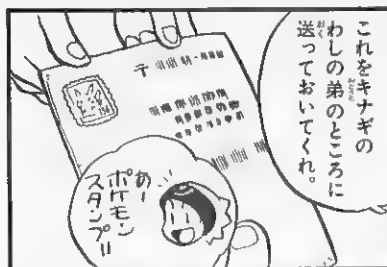 これをキナギの
わしの弟のところに
送っておいてくれ。
あー
ポケモン
スタンプ!!
〒